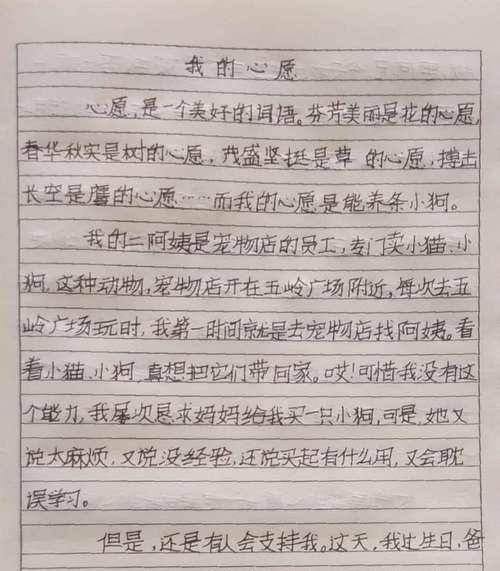 我的心愿
心愿,是一个美好的词语。芬芳美丽是花的心愿,
春华秋实是树的心愿,茂盛坚挺是草 的心愿,搏击
长空是鹰的心愿……而我的心愿是能养条小狗。
我的二阿姨是宠物店的员工,专门卖小猫、小
狗、这种动物,宠物店开在五岭广场附近,每次去五
岭广场玩时,我第一时间就是去宠物店找阿姨。看
看小猫、小狗,真想把它们带回家。哎!可惜我没有这
个能力,我屡次恳求妈妈给我买一只小狗,可是,她又
说太麻烦,又说没经验,还说买起有什么用,又会耽
误学习。
但是,还是有人会支持我。这天,我过生日,爸